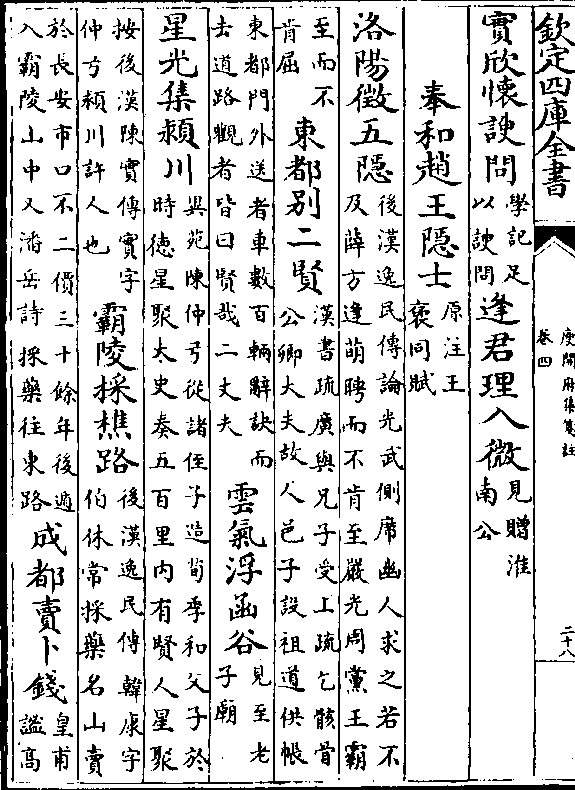 欽定四庫全書
庾開府集箋註
卷四
二十八
實欣懷謏問
學記足
以謏問
逢君理入微
見贈淮
南公
奉和趙王隱士
原注王
褒同賦
洛陽徵五隱
後漢逸民傳論光武側席幽人求之若不
及薛方逢萌聘而不肯至嚴光周黨王霸
至而不
肯屈
東都別二賢
漢書疏廣與兄子受上疏乞骸骨
公卿大夫故人邑子設祖道供帳
東都門外送者車數百輛辭訣而
去道路觀者皆曰賢哉二丈夫
雲氣浮函谷
見至老
子廟
星光集潁川
異苑陳仲弓從諸侄子造荀季和父子於
時德星聚太史奏五百里内有賢人星聚
按後漢陳實傳實字
仲弓潁川許人也
霸陵採樵路
後漢逸民傳韓康字
伯休常採藥名山賣
於長安市口不二價三十餘年後遁
入霸陵山中又潘岳詩採藥往東路
成都賣卜錢
皇甫
謐高